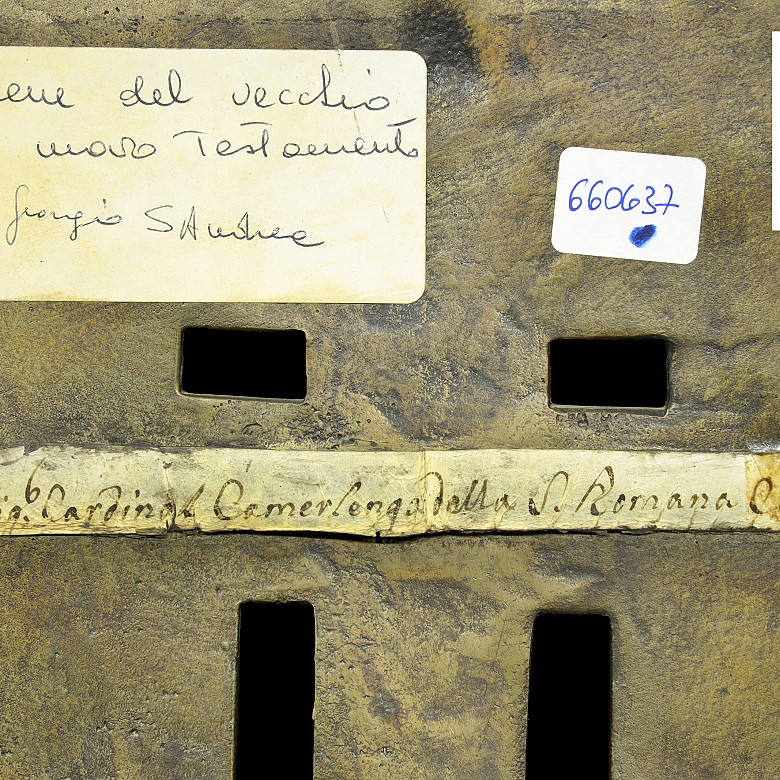 ene del vecchio
nuovo Testamento
Giorgio S Andrea
660637
ig.r Cardinal Camerlengo della S. Romana C